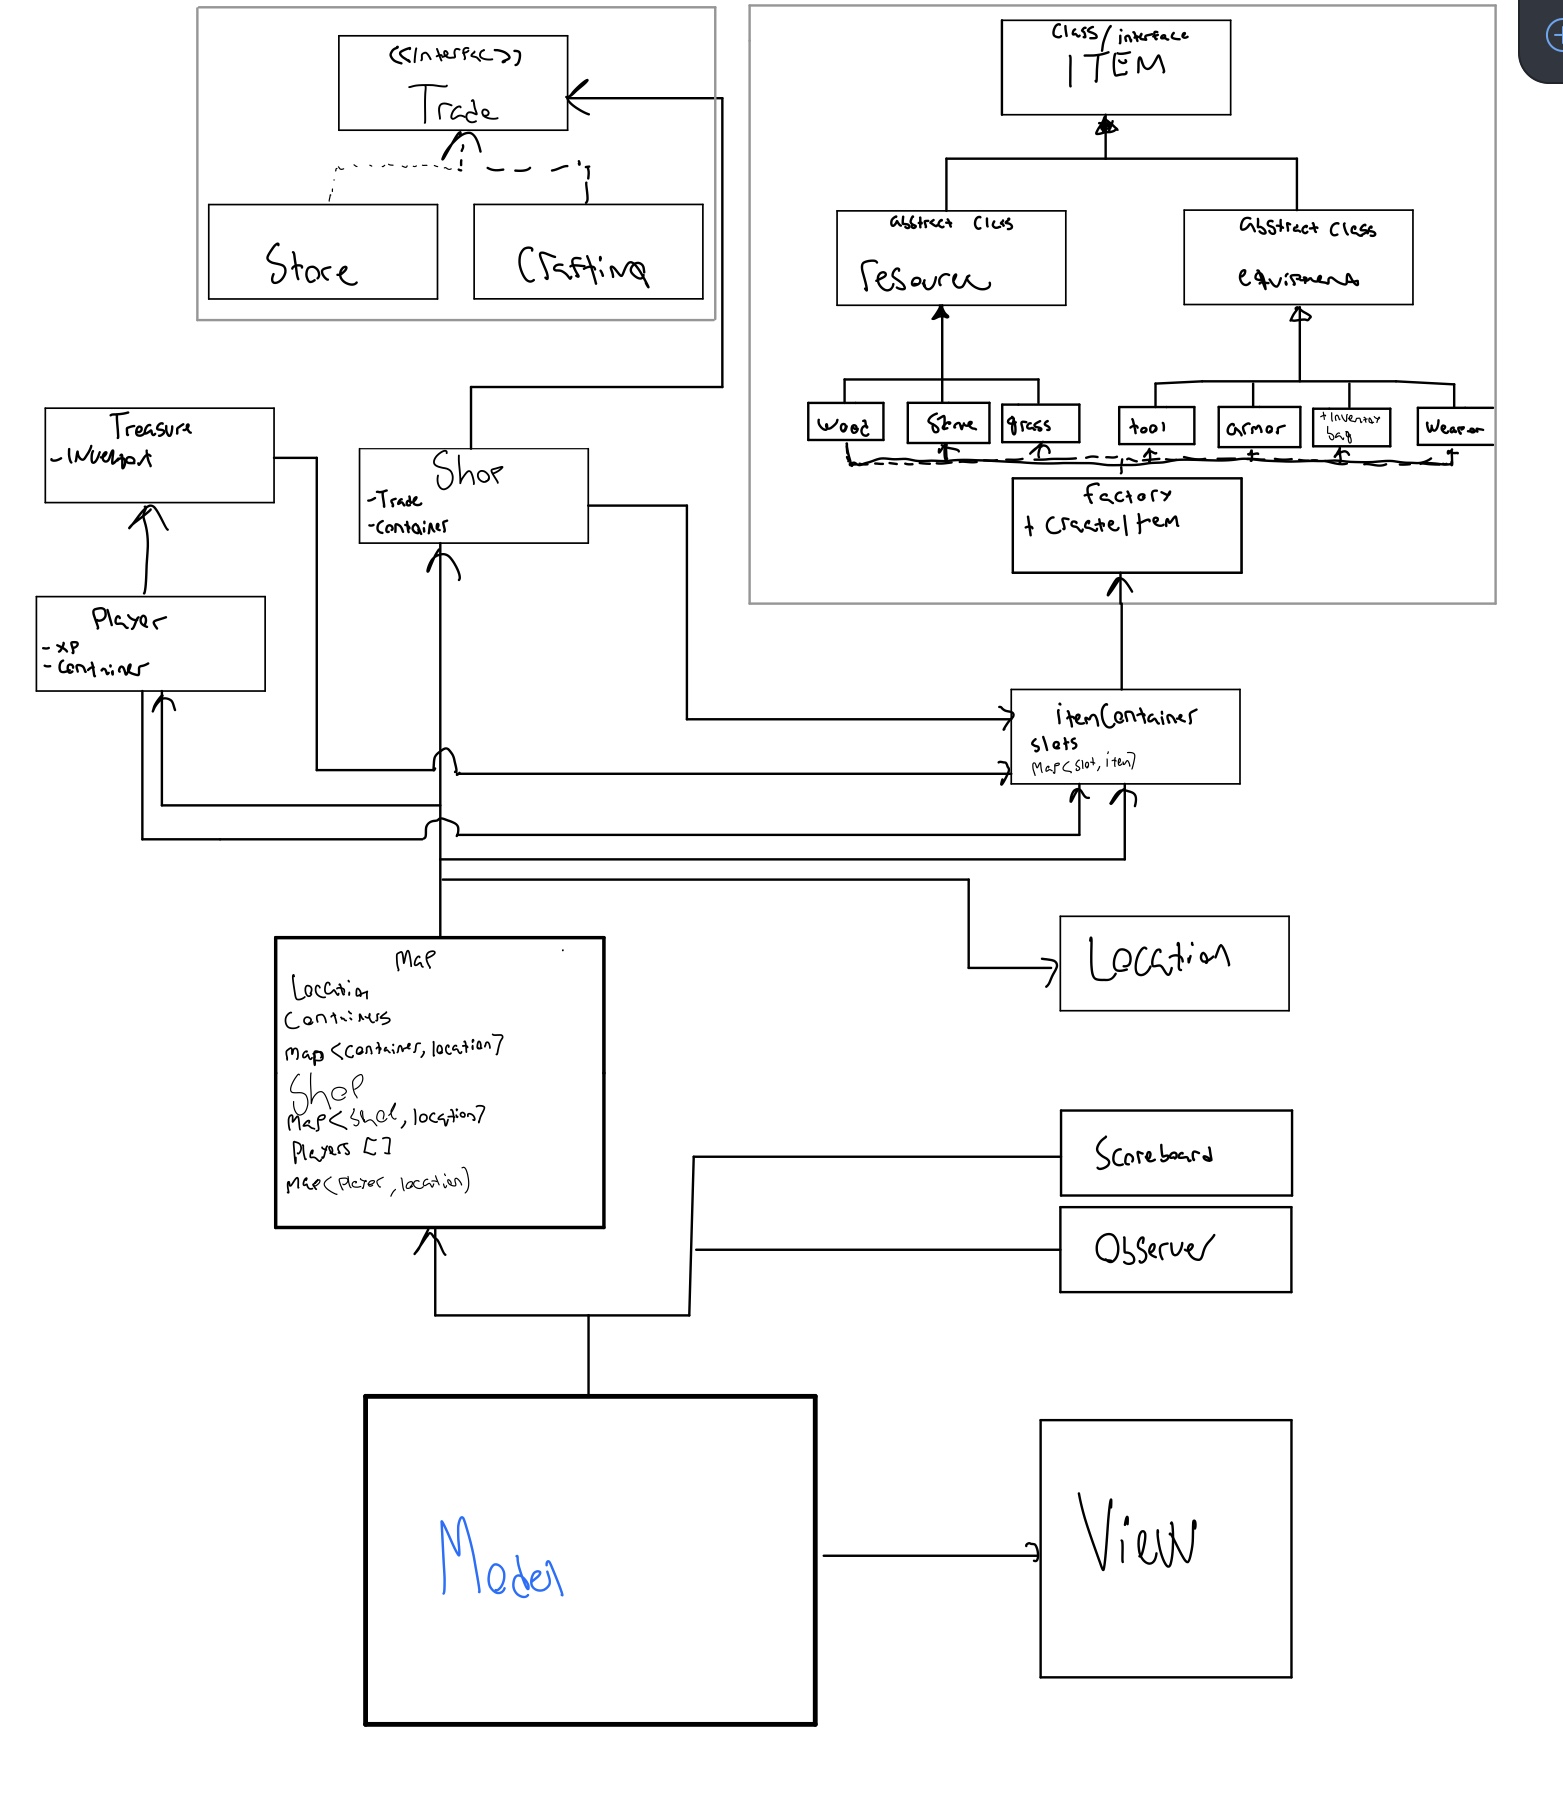 <<Interfac>>
Trade
Store
Crafting
Class/interface
ITEM
abstract class
resource
abstract class
equipment
wood
Stone
grass
tool
armor
+ Inventory
bag
weapon
factory
+ CreateItem
Treasure
-
Shop
-Trade
-Container
Player
- XP
- Container
itemContainer
slots
Map<slot, item>
Location
Map
Location
Containers
Map <Container, location>
Shop
Map<Shop, location>
Players []
Map<Player, location>
Scoreboard
Observer
Model
View